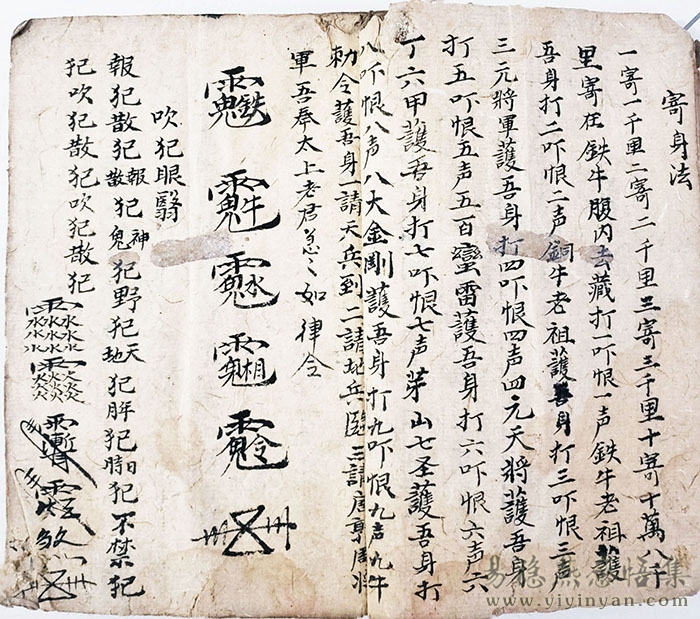 寄身法
一寄一千里二寄二千里三寄三千里十寄十萬八千
里寄在鉄牛腹内去藏打一吓恨一声鉄牛老祖護
吾身打二吓恨二声銅牛老祖護吾身打三吓恨三声
三元將軍護吾身打四吓恨四声四元天將護吾身
打五吓恨五声五百蛮雷護吾身打六吓恨六声六
丁六甲護吾身打七吓恨七声茅山七圣護吾身打
八吓恨八声八大金剛護吾身打九吓恨九声九牛
勅令護吾身一請天兵到二請地兵臨三請唐葛周將
軍吾奉太上老君急〻如律令
吹犯眼翳
報犯散犯報散犯神鬼犯野犯天地犯胖犯犯不禁犯
犯吹犯散犯吹犯散犯
易隐燕感悟集
www.yiyinyan.com